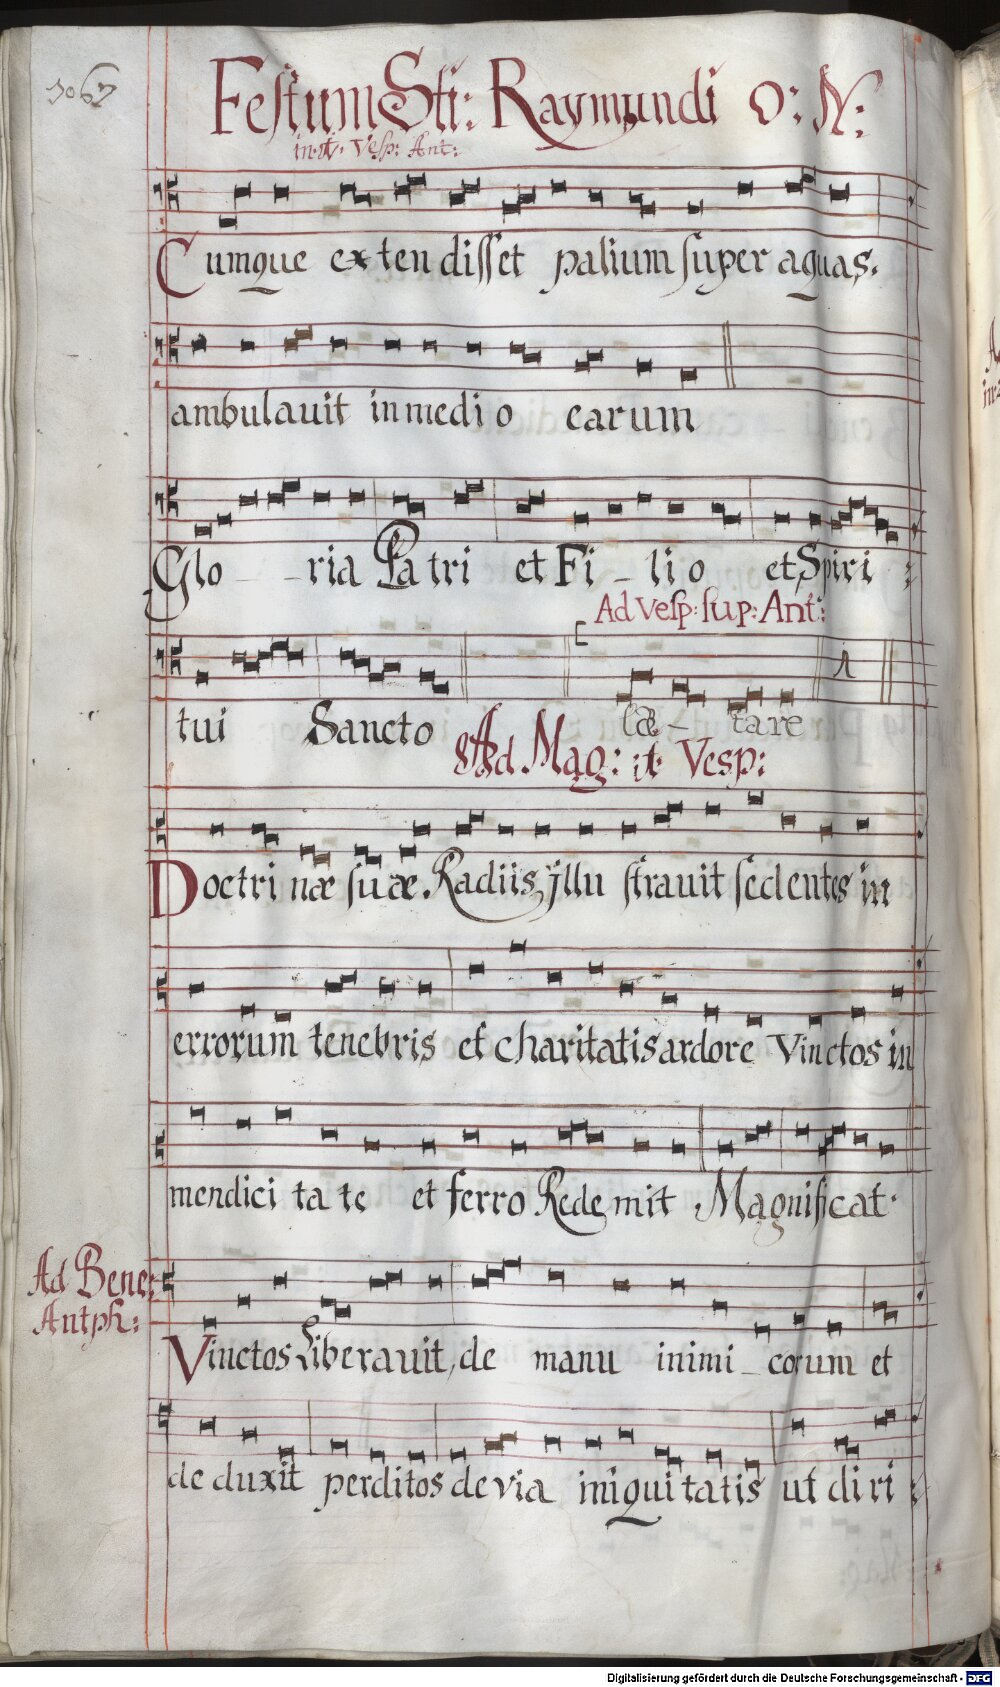 Festum Sti: Raymundi O: N:
Vesp: Ant:
Cumque extendisset palium super aquas.
ambulauit in medio earum
Glo - - ria Patri et Fi - lio et Spiri
Ad Vesp: sup: Ant:
tui Sancto læ - tare
Ad Mag: Vesp:
Doctrinæ suæ. Radiis yllustrauit sedentes in
errorum tenebris et charitatis ardore Vinctos in
mendicitate et ferro Redemit Magnificat.
Ad Bene:
Antph:
Vinctos Liberauit, de manu inimi - corum et
deduxit perditos de via iniquitatis ut diri
Digitalisierung gefördert durch die Deutsche Forschungsgemeinschaft - DFG